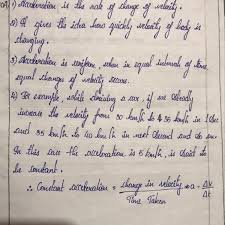 1) Acceleration is the rate of change of velocity.
2) It gives the idea how quickly velocity of body is
changing.
3) Acceleration is uniform, when in equal intervals of time
equal changes of velocity occurs.
4) For example, while driving a car, if we steadily
increase the velocity from 30 km/h to 35 km/h in 1
and 35 km/h to 40 km/h in next and so on
In this case the acceleration is 5 km/h, is said to
be constant.
∴ Constant acceleration = change in velocity / Time Taken ⇒ a = Δv / Δt